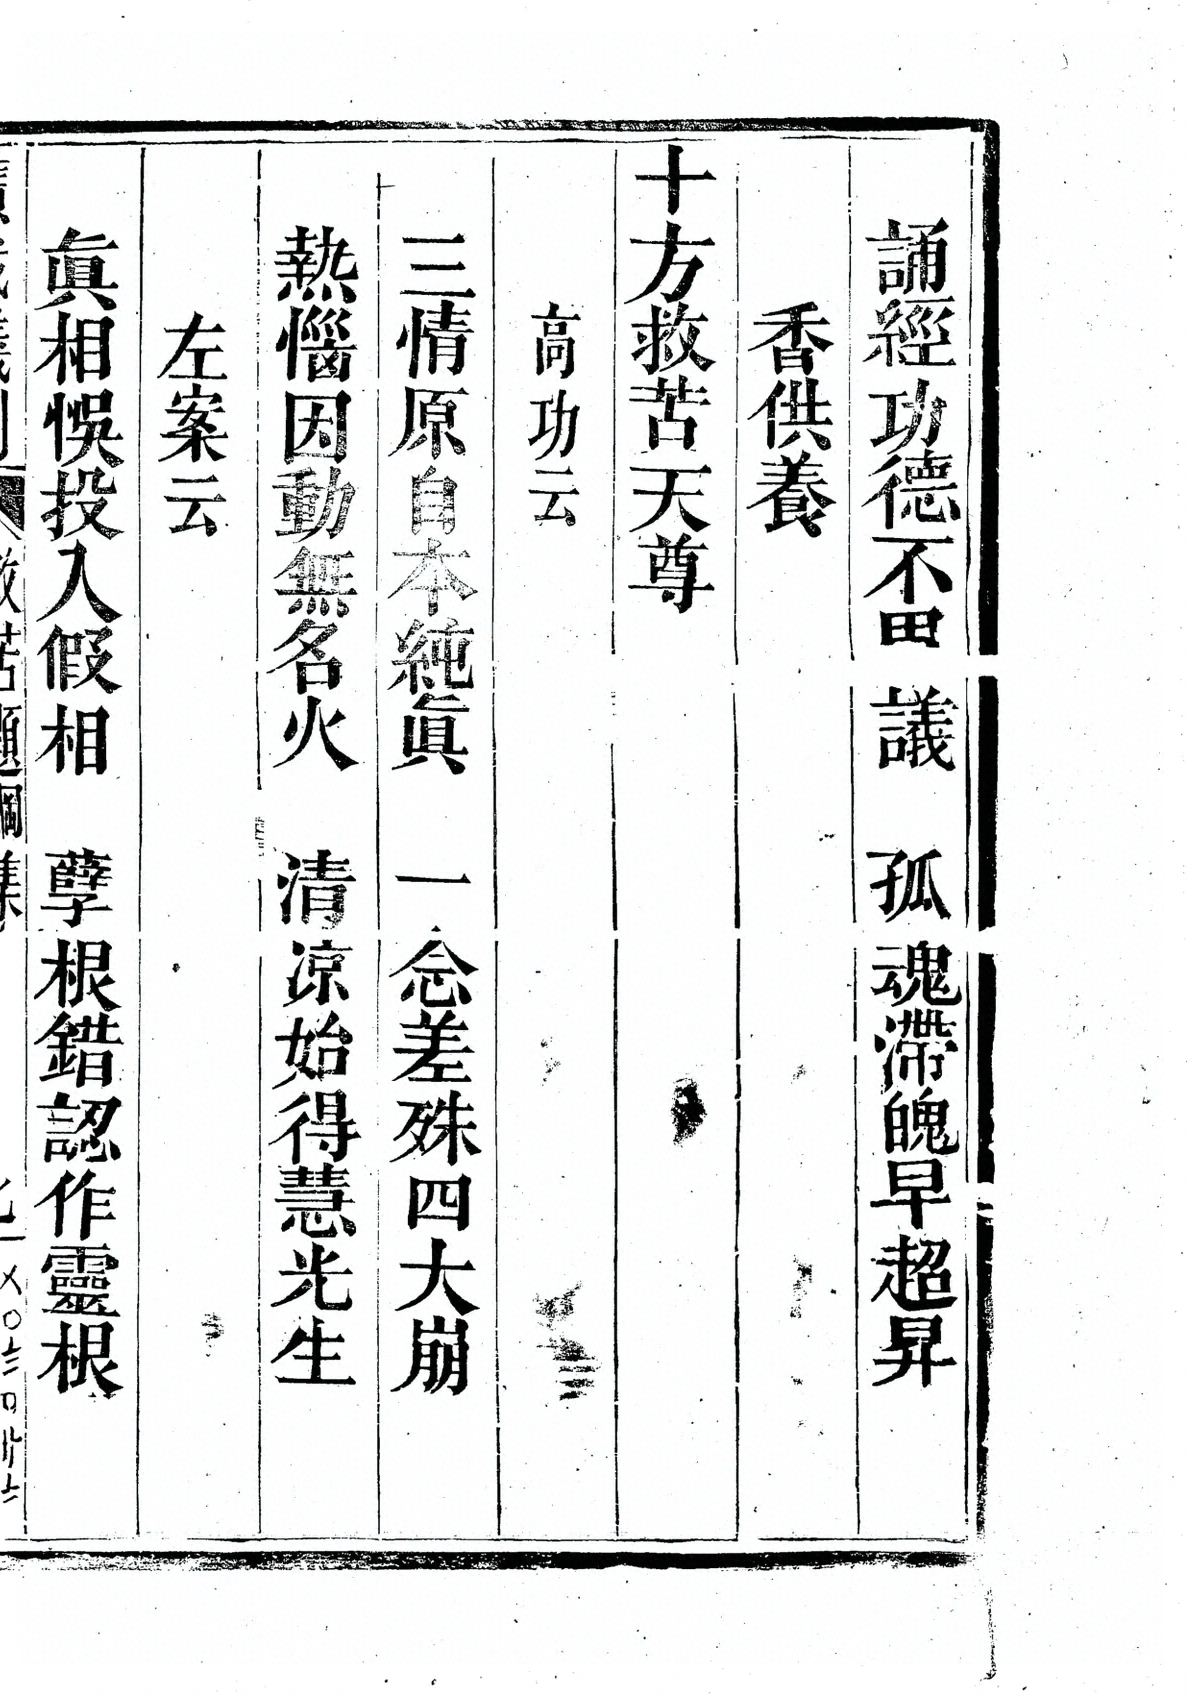 誦經功德不畱議　孤魂滯魄早超昇
香供養
十方救苦天尊
高功云
三情原自本純眞　一念差殊四大崩
熱惱因動無名火　清涼始得慧光生
左案云
眞相悞投入假相　孽根錯認作靈根
救苦題綱集